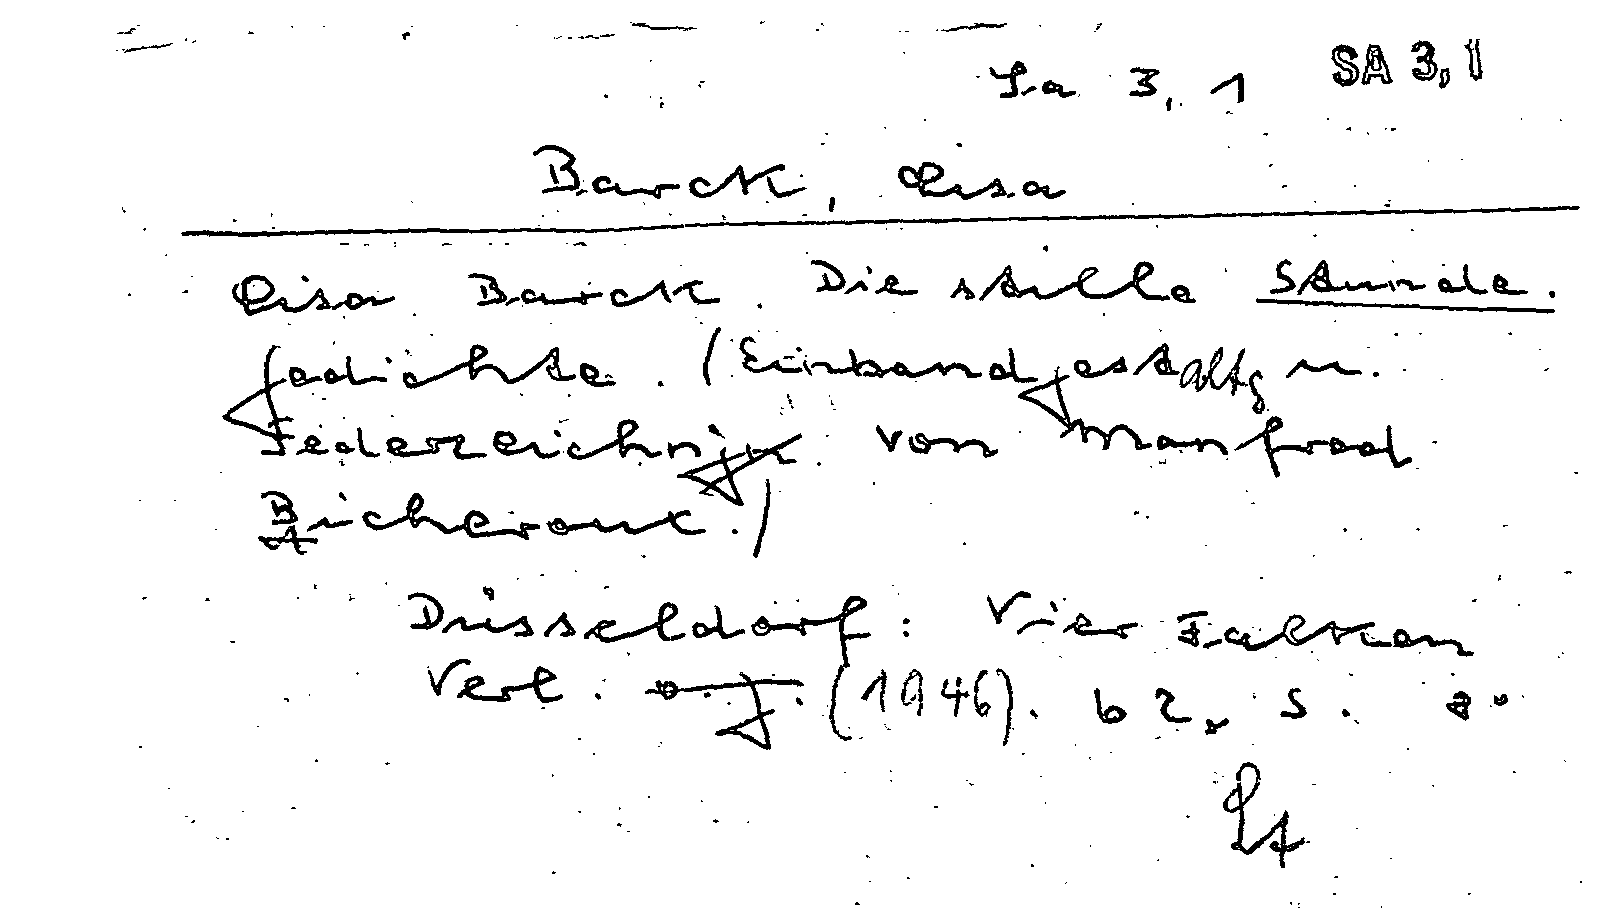 Sa 3, 1 SA 3, 1
Barck, Lisa
Lisa Barck. Die stille Stunde.
Gedichte. (Einbandgestaltg u.
Federzeichngn. von Manfred
Bicheroux.)
Düsseldorf: Vier Falken
Verl. o. J. (1946). 62, S. 8°